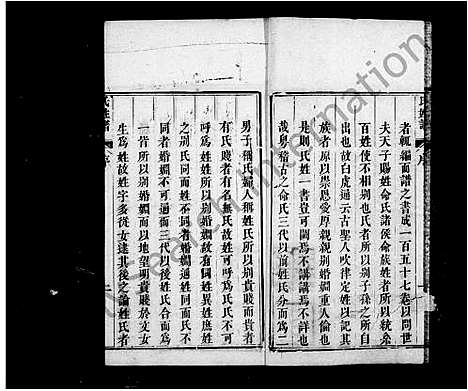 者輒編而譜之書成一百五十七卷以問世
夫天子賜姓命氏諸侯命族姓者所以統系
百姓使不相別也氏者所以別子孫之所自
出也故白虎通云古聖人吹律定姓以記其
族者原以崇恩愛厚親親別婚姻重人倫也
是則氏姓一書豈可闕焉不講講焉不詳也
哉粵稽古之命氏三代以前姓氏分而為二
男子稱氏婦人稱姓氏所以別貴賤貴者
有氏賤者有名無氏故姓可呼為氏氏不可
呼為姓姓所以別婚姻故有同姓異姓庶姓
之別氏同而姓不同者婚姻可通姓同而氏不
同者婚姻不可通三代以後姓氏合而為
一皆所以別婚姻而以地望明貴賤於文女
生為姓故姓字多從女逮其後之論姓氏者
氏姓譜
序
二